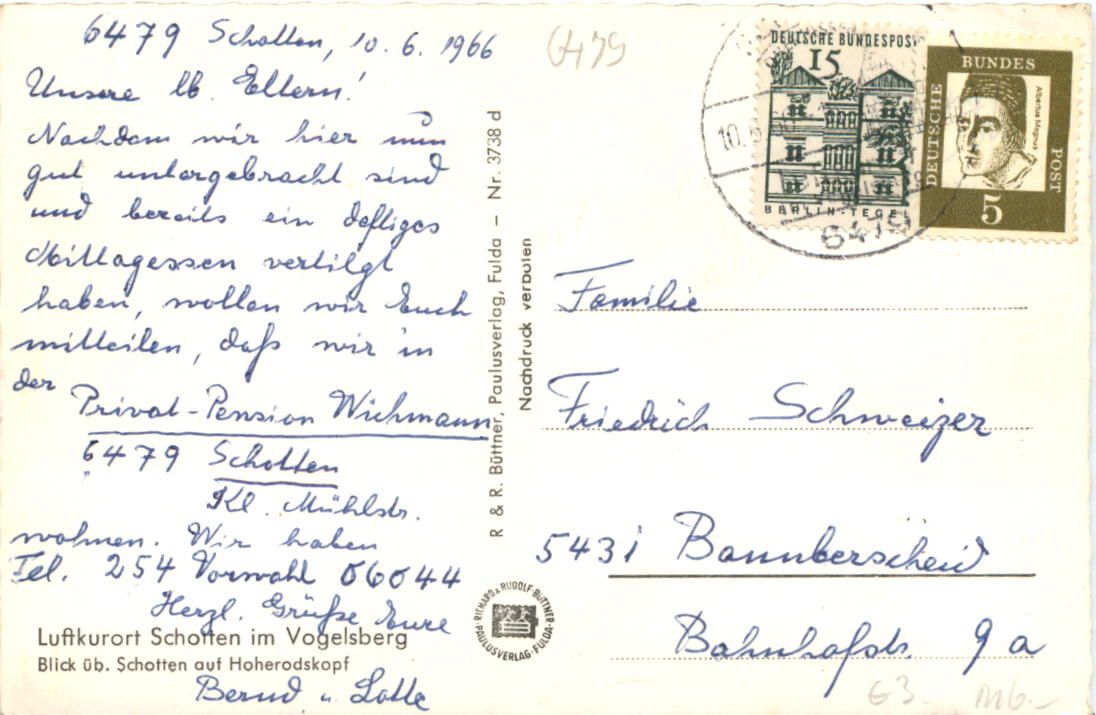 6479 Schotten, 10.6.1966
Unsere lb. Eltern!
Nachdem wir hier nun
gut untergebracht sind
und bereits ein deftiges
Mittagessen vertilgt
haben, wollen wir Euch
mitteilen, daß wir in
der
Privat-Pension Wichmann
6479 Schotten
Kl. Mühlstr.
wohnen. Wir haben
Tel. 254 Vorwahl 06044
Herzl. Grüße Eure
Luftkurort Schotten im Vogelsberg
Blick üb. Schotten auf Hoherodskopf
Bernd u. Lotte
R & R. Büttner, Paulusverlag, Fulda – Nr. 3738 d
Nachdruck verboten
RICHARD & RUDOLF BÜTTNER
PAULUSVERLAG · FULDA
6479
DEUTSCHE BUNDESPOST
15
BERLIN-TEGEL
DEUTSCHE
BUNDES
POST
Albertus Magnus
5
10.
6479
Familie
Friedrich Schweizer
5431 Bannberscheid
Bahnhofstr. 9a